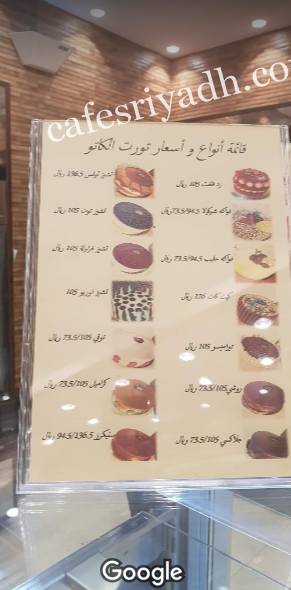 cafesriyadh.co
قائمة أنواع و أسعار تورت الكاتو
رد فلفت 105 ريال
فواكه شوكولا 73.5/94.5 ريال
فواكه حليب 73.5/94.5 ريال
كيت كات 136 ريال
تيراميسو 105 ريال
روشي 73.5/105 ريال
جلاكسي 73.5/105 ريال
تشيز لوتس 136.5 ريال
تشيز توت 105 ريال
تشيز فراولة 105 ريال
تشيز اوريو 105
توفي 73.5/105 ريال
كراميل 73.5/105 ريال
سنيكرز 94.5/136.5 ريال
Google